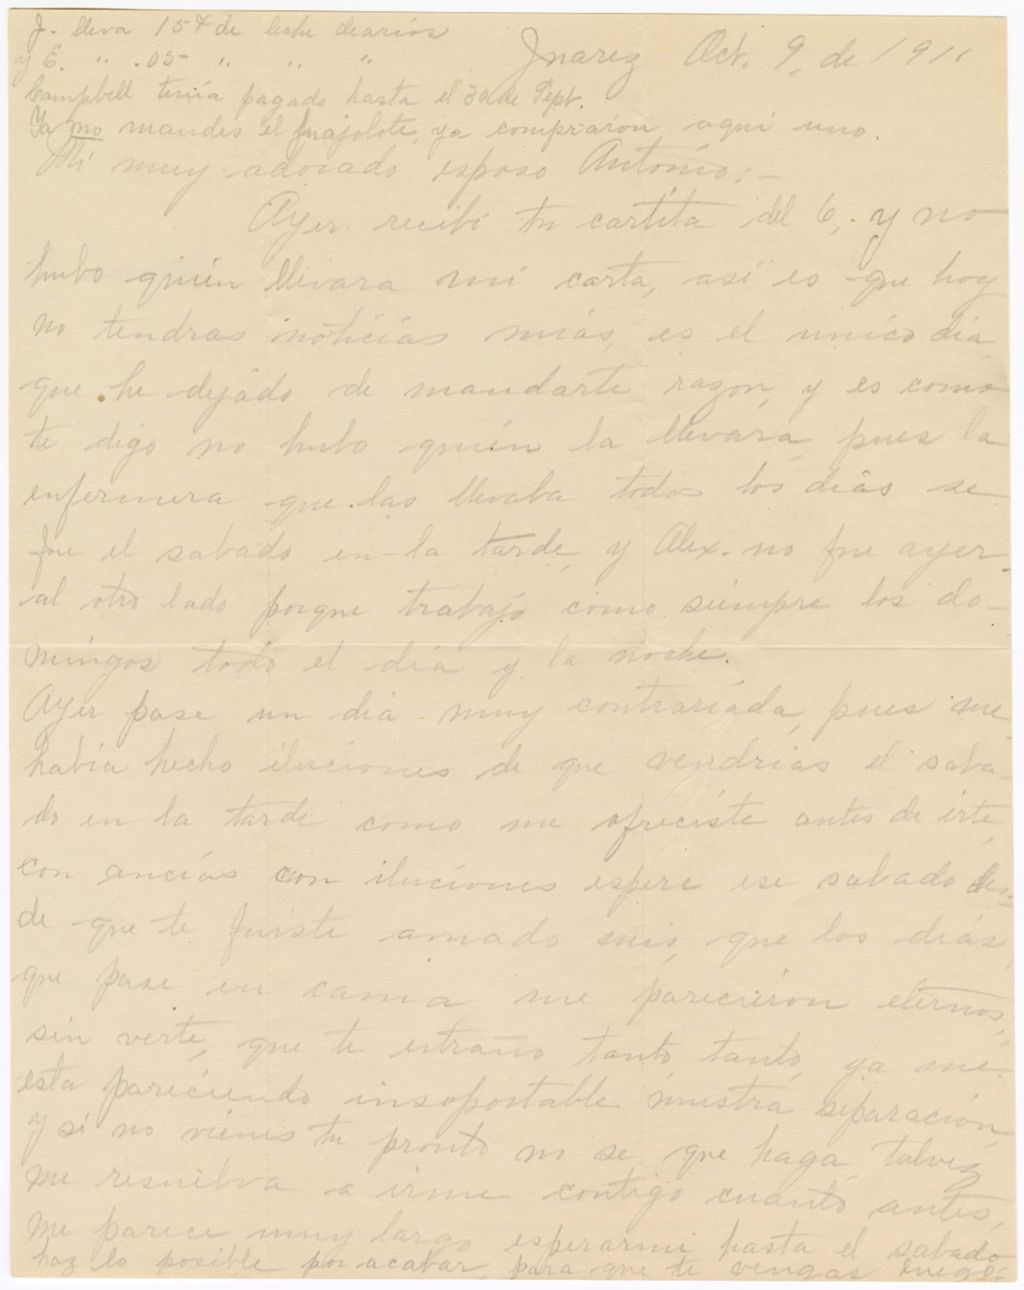 J. lleva 15¢ de leche diarios
y E. " .05 " " "
Juarez Oct. 9, de 1911
Campbell tenía pagado hasta el 30 de Sept.
Ya no mandes el guajolote, ya compraron aqui uno.
Mi muy adorado esposo Antonio:-
Ayer recibi tu cartita del 6, y no
hubo quién llevara mi carta, asi es que hoy
no tendras noticias mías, es el unico día
que he dejado de mandarte razon, y es como
te digo no hubo quién la llevara, pues la
enfermera que las llevaba todos los días se
fue el sabado en la tarde, y Alex. no fue ayer
al otro lado porque trabajo como siempre los do-
mingos todo el día y la noche.
Ayer pase un día muy contrariada, pues me
había hecho iluciones de que vendrías el saba-
do en la tarde como me ofreciste antes de irte,
con ancías con iluciones espere ese sabado des-
de que te fuiste amado mio, que los días
que pase en cama me parecieron eternos,
sin verte, que te estraño tanto, tanto, ya me
esta pareciendo insoportable nuestra separación,
y si no vienes tu pronto no se que haga, talvez
me resuelva a irme contigo cuanto antes,
me parece muy largo esperarme hasta el sabado
haz lo posible por acabar, para que te vengas luego,